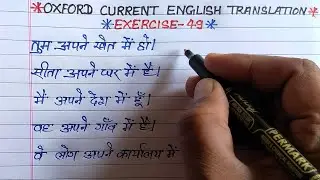 *OXFORD CURRENT ENGLISH TRANSLATION*
*EXERCISE-49*
तुम अपने खेत में हो।
सीता अपने घर में है।
मैं अपने देश में हूँ।
वह अपने गाँव में है।
वे लोग अपने कार्यालय में